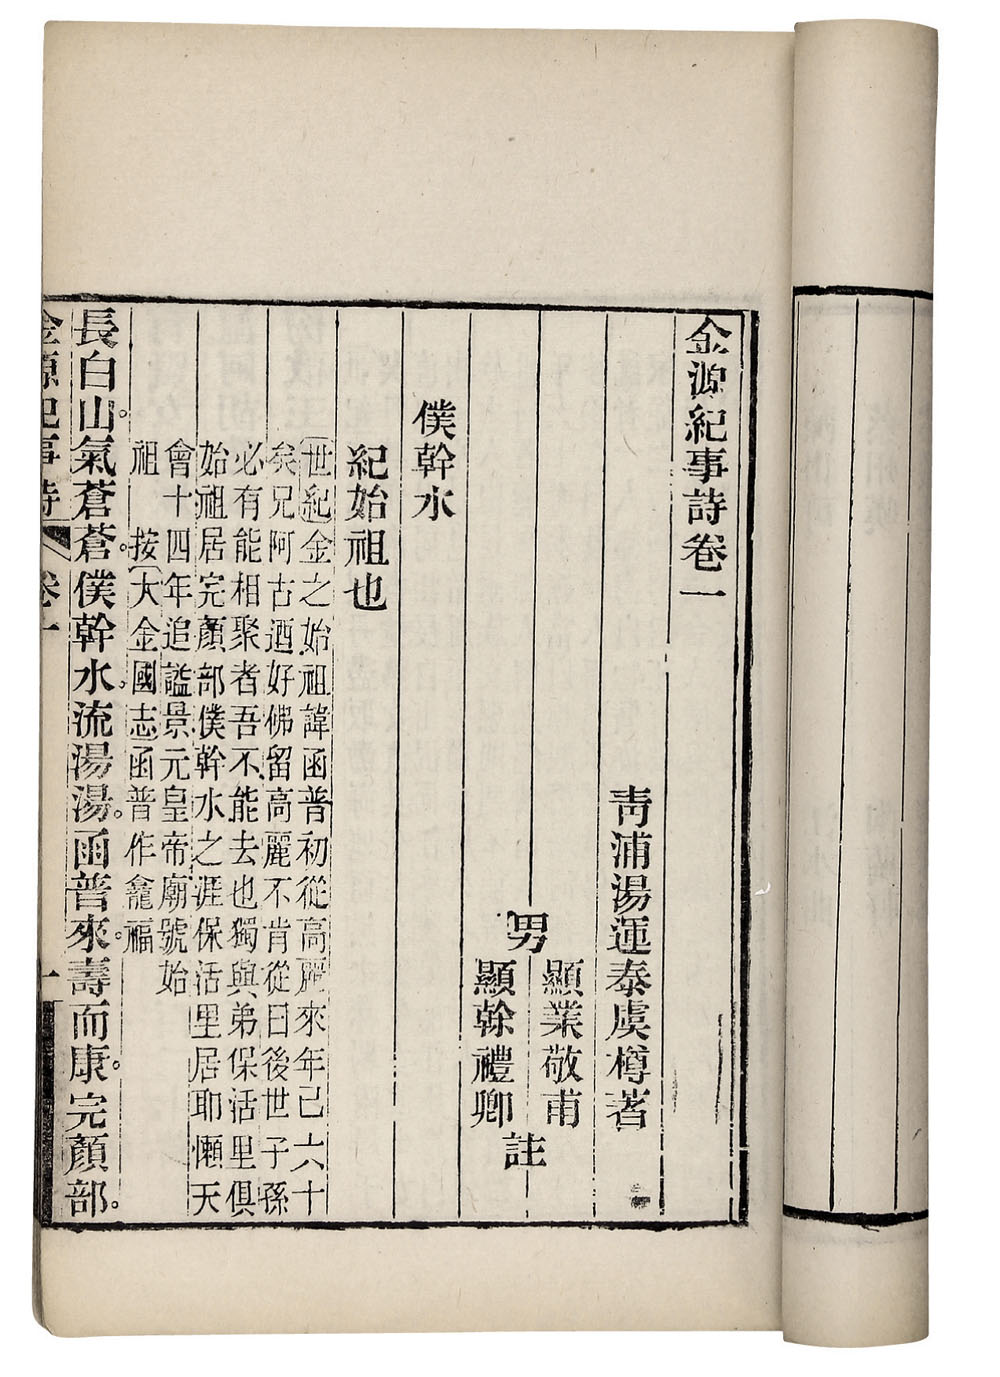 金源紀事詩卷一
青浦湯運泰虞樽著
男
顯業敬甫
顯幹禮卿
註
僕幹水
紀始祖也
世紀金之始祖諱函普初從高麗來年已六十
矣兄阿古迺好佛留高麗不肯從曰後世子孫
必有能相聚者吾不能去也獨與弟保活里俱
始祖居完顏部僕幹水之涯保活里居耶懶天
會十四年追諡景元皇帝廟號始
祖　按大金國志函普作龕福
長白山。氣蒼蒼。僕幹水。流湯湯。函普來。壽而康。完顏部。
金源紀事詩　卷一　一